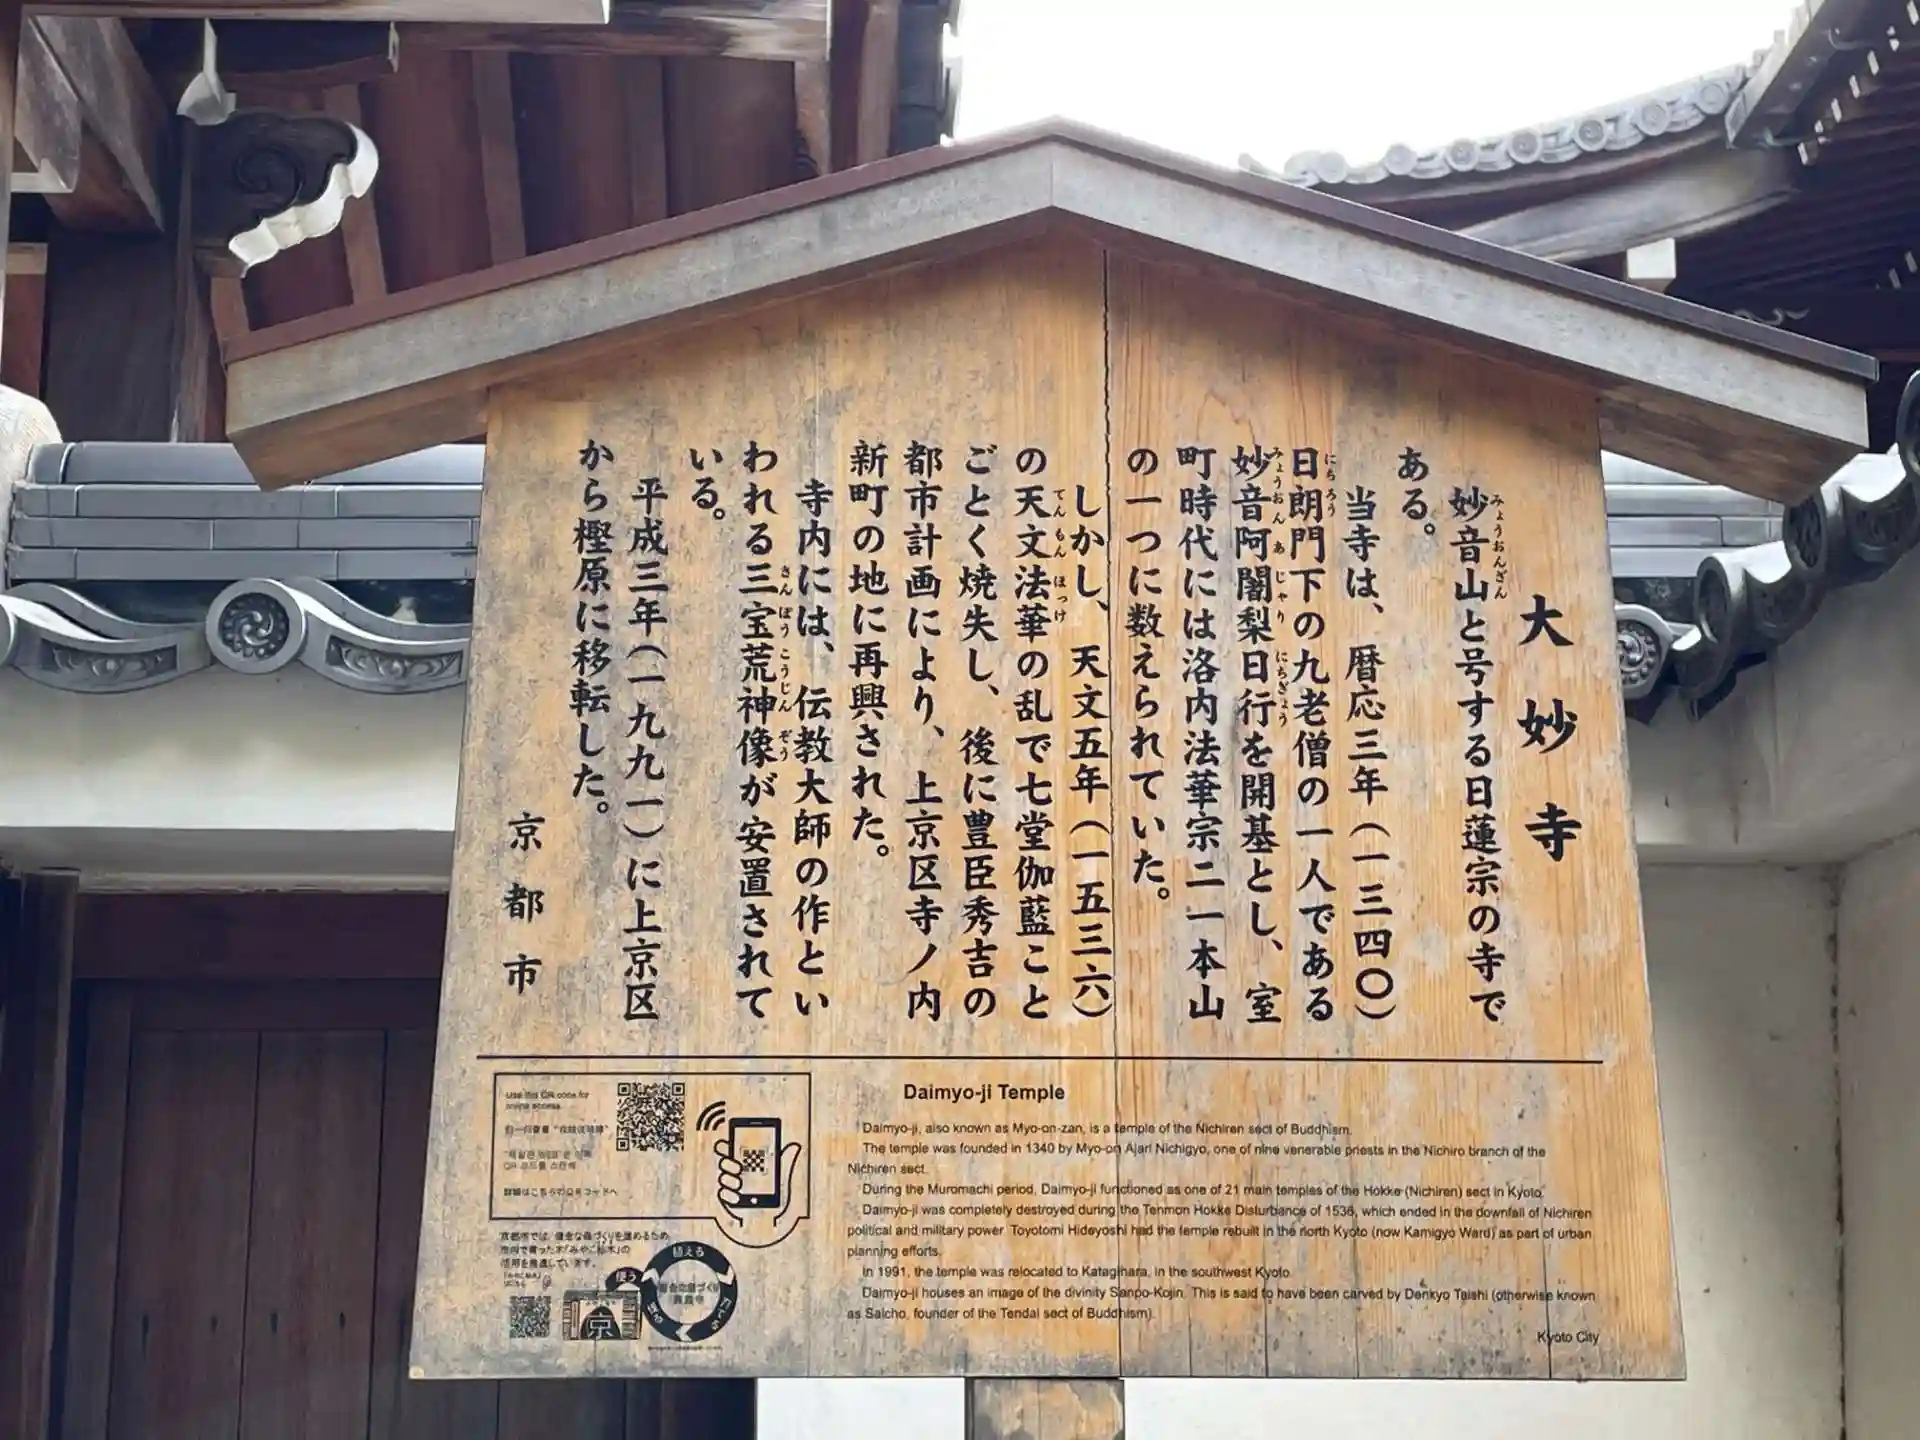 大妙寺
妙音山と号する日蓮宗の寺で
ある。
当寺は、暦応三年(一三四〇)
日朗門下の九老僧の一人である
妙音阿闍梨日行を開基とし、室
町時代には洛内法華宗二一本山
の一つに数えられていた。
しかし、天文五年(一五三六)
の天文法華の乱で七堂伽藍こと
ごとく焼失し、後に豊臣秀吉の
都市計画により、上京区寺ノ内
新町の地に再興された。
寺内には、伝教大師の作とい
われる三宝荒神像が安置されて
いる。
平成三年(一九九一)に上京区
から樫原に移転した。
京都市
Use this QR code for
online access.
詳細はこちらのQRコードへ
京都市では、健全な森づくりを進めるため、
市内で育った木「みやこ杣木」の
活用を推進しています。
使う
植える
京
Daimyo-ji Temple
Daimyo-ji, also known as Myo-on-zan, is a temple of the Nichiren sect of Buddhism.
The temple was founded in 1340 by Myo-on Ajari Nichigyo, one of nine venerable priests in the Nichiro branch of the
Nichiren sect.
During the Muromachi period, Daimyo-ji functioned as one of 21 main temples of the Hokke (Nichiren) sect in Kyoto.
Daimyo-ji was completely destroyed during the Tenmon Hokke Disturbance of 1536, which ended in the downfall of Nichiren
political and military power. Toyotomi Hideyoshi had the temple rebuilt in the north Kyoto (now Kamigyo Ward) as part of urban
planning efforts.
In 1991, the temple was relocated to Katagihara, in the southwest Kyoto.
Daimyo-ji houses an image of the divinity Sanpo-Kojin. This is said to have been carved by Denkyo Taishi (otherwise known
as Saicho, founder of the Tendai sect of Buddhism).
Kyoto City